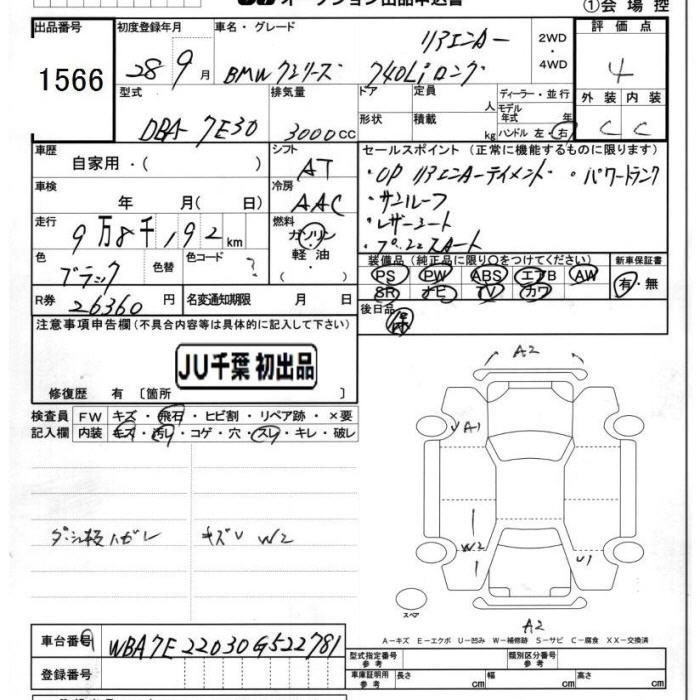 オークション出品申込書
①会場控
出品番号
1566
初度登録年月
28 9月
車名・グレード
リアエンター
BMW 7シリーズ 740Li ロング
2WD
・
4WD
評価点
4
型式
DBA-7E30
排気量
3000cc
ドア
形状
定員 人
積載 kg
ディーラー・並行
モデル年式 年
ハンドル 左・右
外装 内装
C C
車歴
自家用・( )
シフト
AT
セールスポイント (正常に機能するものに限ります)
・OP リアエンターテイメント ・パワートランク
・サンルーフ
・レザーシート
車検
年 月( 日)
冷房
AAC
走行
9万8千192km
燃料
ガソリン
・
軽油
( ・ )
色
ブラック
色替
色コード
?
装備品 (純正品に限り○をつけてください)
PS PW ABS エアB AW
SR ナビ TV カワ
新車保証書
有・無
R券
26360円
名変通知期限 月 日
後日品
保
注意事項申告欄 (不具合内容等は具体的に記入して下さい)
JU千葉 初出品
修復歴 有 〔箇所 〕
検査員 FW キズ・飛石・ヒビ割・リペア跡・×要
記入欄 内装 キズ・汚レ・コゲ・穴・スレ・キレ・破レ
キズU W2
A2
A1
W2
U1
スペア
A2
A-キズ E-エクボ U-凹み W-補修跡 S-サビ C-腐食 XX-交換済
車台番号
WBA7E22030G522781
登録番号
型式指定番号 参考
類別区分番号 参考
車庫証明用 参考 長さ cm 幅 cm 高さ cm